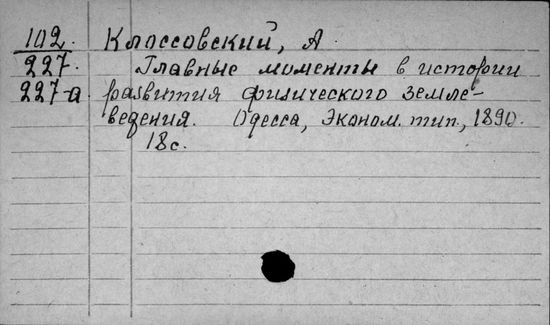 102. Клоссовский, А.
227. Главные моменты в истории
227-а развития физического земле-
ведения. Одесса, Эконом. тип., 1890.
18с.